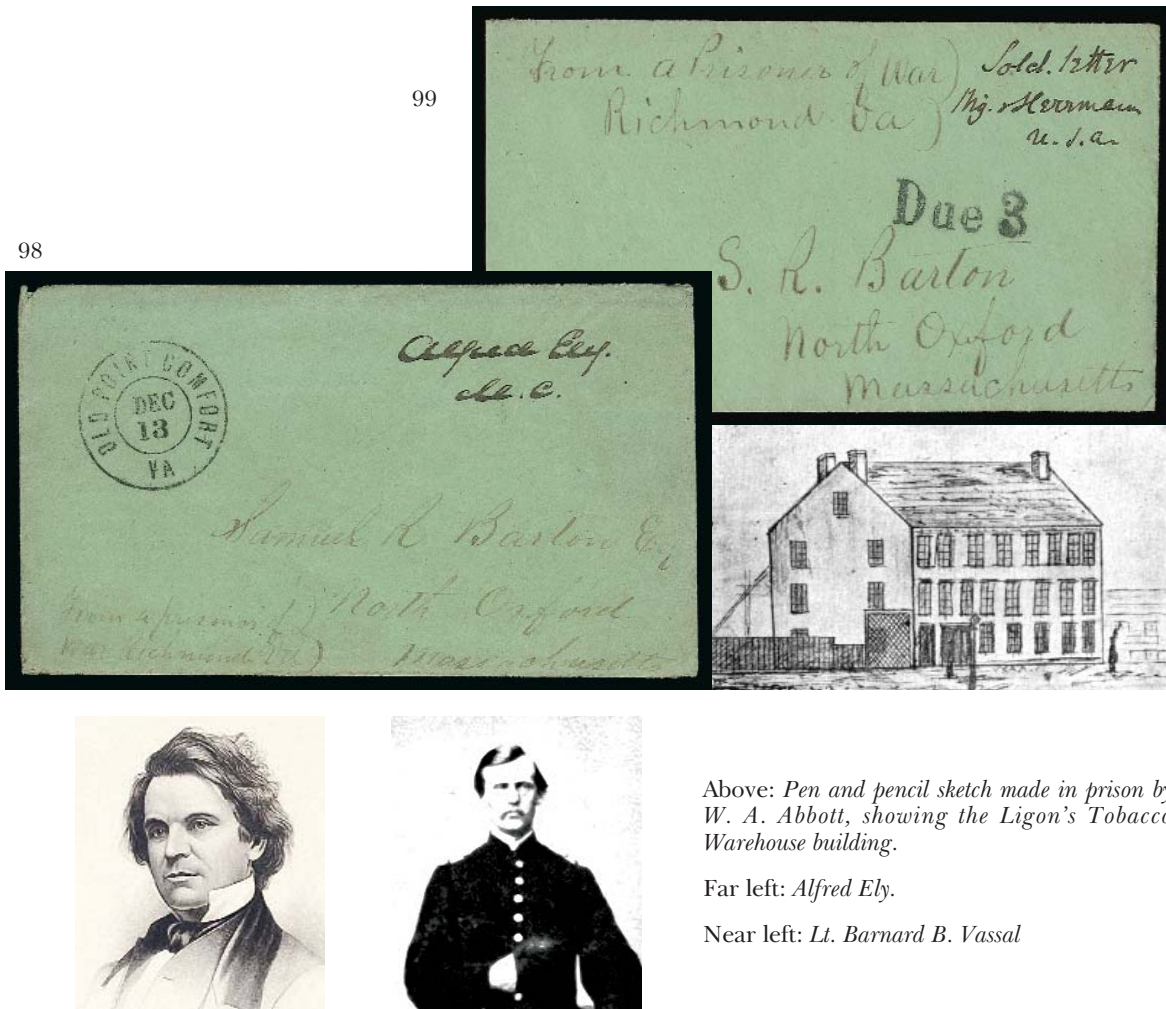 99
From a Prisoner of War)
Richmond Va )
Sold. letter
Herrmann
U.S.A.
Due 3
S. R. Barton
North Oxford
Massachusetts
98
OLD POINT COMFORT
DEC
13
VA
Alfred Ely.
M.C.
Samuel R Barton Esq
North Oxford
Massachusetts
From a prisoner of )
War Richmond Va )
Above: Pen and pencil sketch made in prison by
W. A. Abbott, showing the Ligon's Tobacco
Warehouse building.
Far left: Alfred Ely.
Near left: Lt. Barnard B. Vassal